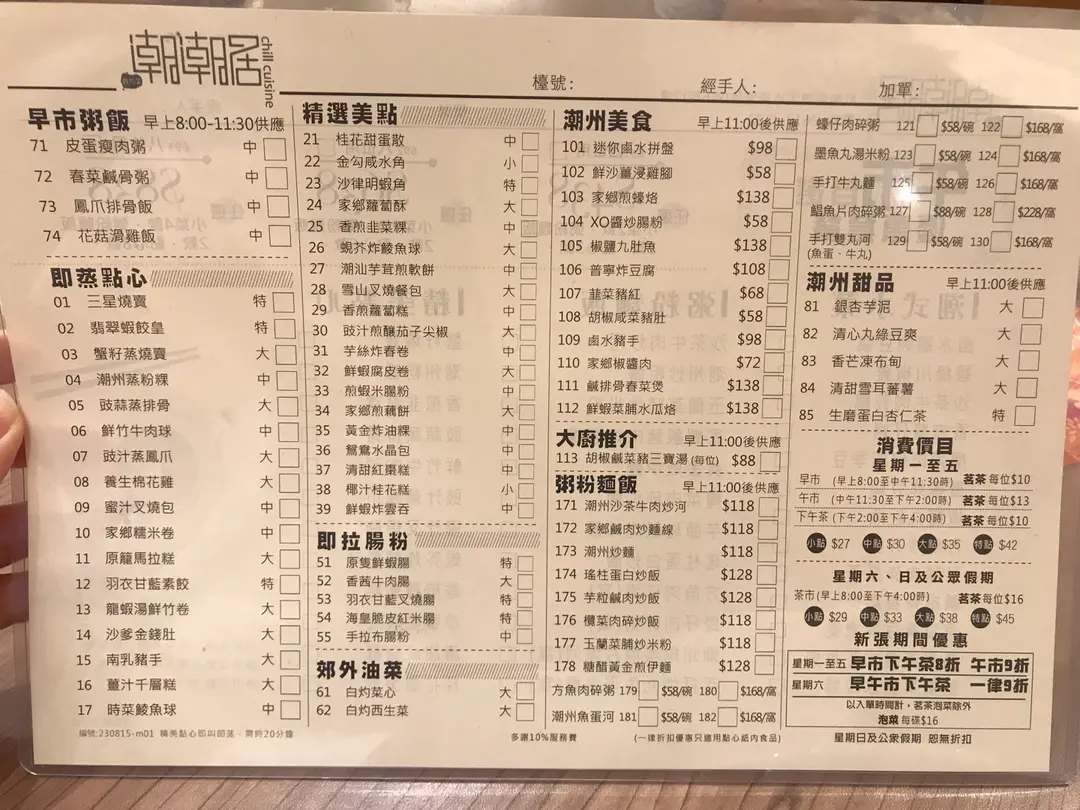 潮潮居
chill cuisine
檯號：
經手人：
加單：
早市粥飯 早上8:00-11:30供應
71 皮蛋瘦肉粥 中
72 春菜鹹骨粥 中
73 鳳爪排骨飯 中
74 花菇滑雞飯 中
即蒸點心
01 三星燒賣 特
02 翡翠蝦餃皇 特
03 蟹籽蒸燒賣 大
04 潮州蒸粉粿 中
05 豉蒜蒸排骨 大
06 鮮竹牛肉球 中
07 豉汁蒸鳳爪 大
08 養生棉花雞 大
09 蜜汁叉燒包 中
10 家鄉糯米卷 中
11 原籠馬拉糕 大
12 羽衣甘藍素餃 特
13 龍蝦湯鮮竹卷 大
14 沙爹金錢肚 大
15 南乳豬手 大
16 薑汁千層糕 大
17 時菜鯪魚球 中
編號:230815-m01 精美點心即叫即蒸，需時20分鐘
精選美點
21 桂花甜蛋散 中
22 金勾咸水角 小
23 沙律明蝦角 特
24 家鄉蘿蔔酥 大
25 香煎韭菜粿 中
26 蜆芥炸鯪魚球 大
27 潮汕芋茸煎軟餅 中
28 雪山叉燒餐包 大
29 香煎蘿蔔糕 中
30 豉汁煎釀茄子尖椒 大
31 芋絲炸春卷 中
32 鮮蝦腐皮卷 大
33 煎蝦米腸粉 中
34 家鄉煎藕餅 大
35 黃金炸油粿 中
36 鴛鴦水晶包 中
37 清甜紅棗糕 中
38 椰汁桂花糕 小
39 鮮蝦炸雲吞 中
即拉腸粉
51 原隻鮮蝦腸 特
52 香茜牛肉腸 大
53 羽衣甘藍叉燒腸 特
54 海皇脆皮紅米腸 特
55 手拉布腸粉 中
郊外油菜
61 白灼菜心 大
62 白灼西生菜 大
潮州美食 早上11:00後供應
101 迷你鹵水拼盤 $98
102 鮮沙薑浸雞腳 $58
103 家鄉煎蠔烙 $138
104 XO醬炒腸粉 $58
105 椒鹽九肚魚 $138
106 普寧炸豆腐 $108
107 韮菜豬紅 $68
108 胡椒咸菜豬肚 $58
109 鹵水豬手 $98
110 家鄉椒醬肉 $72
111 鹹排骨春菜煲 $138
112 鮮蝦菜脯水瓜烙 $138
大廚推介 早上11:00後供應
113 胡椒鹹菜豬三寶湯(每位) $88
粥粉麵飯 早上11:00後供應
171 潮州沙茶牛肉炒河 $118
172 家鄉鹹肉炒麵線 $118
173 潮州炒麵 $118
174 瑤柱蛋白炒飯 $128
175 芋粒鹹肉炒飯 $128
176 欖菜肉碎炒飯 $118
177 玉蘭菜脯炒米粉 $118
178 糖醋黃金煎伊麵 $128
方魚肉碎粥 179 $58/碗 180 $168/窩
潮州魚蛋河 181 $58/碗 182 $168/窩
多謝10%服務費 (一律折扣優惠只適用點心紙內食品)
蠔仔肉碎粥 121 $58/碗 122 $168/窩
墨魚丸湯米粉 123 $58/碗 124 $168/窩
手打牛丸麵 125 $58/碗 126 $168/窩
鯧魚片肉碎粥 127 $88/碗 128 $228/窩
手打雙丸河 129 $58/碗 130 $168/窩
(魚蛋、牛丸)
潮州甜品 早上11:00後供應
81 銀杏芋泥 大
82 清心丸綠豆爽 大
83 香芒凍布甸 大
84 清甜雪耳蕃薯 大
85 生磨蛋白杏仁茶 特
消費價目
星期一至五
早市 (早上8:00至中午11:30時) 茗茶 每位$10
午市 (中午11:30至下午2:00時) 茗茶 每位$13
下午茶 (下午2:00至下午4:00時) 茗茶 每位$10
小點 $27 中點 $30 大點 $35 特點 $42
星期六、日及公眾假期
茶市(早上8:00至下午4:00時) 茗茶每位$16
小點 $29 中點 $33 大點 $38 特點 $45
新張期間優惠
星期一至五 早市下午茶8折 午市9折
星期六 早午市下午茶 一律9折
以入單時間計，茗茶泡菜除外
泡菜 每碟$16
星期日及公眾假期 恕無折扣